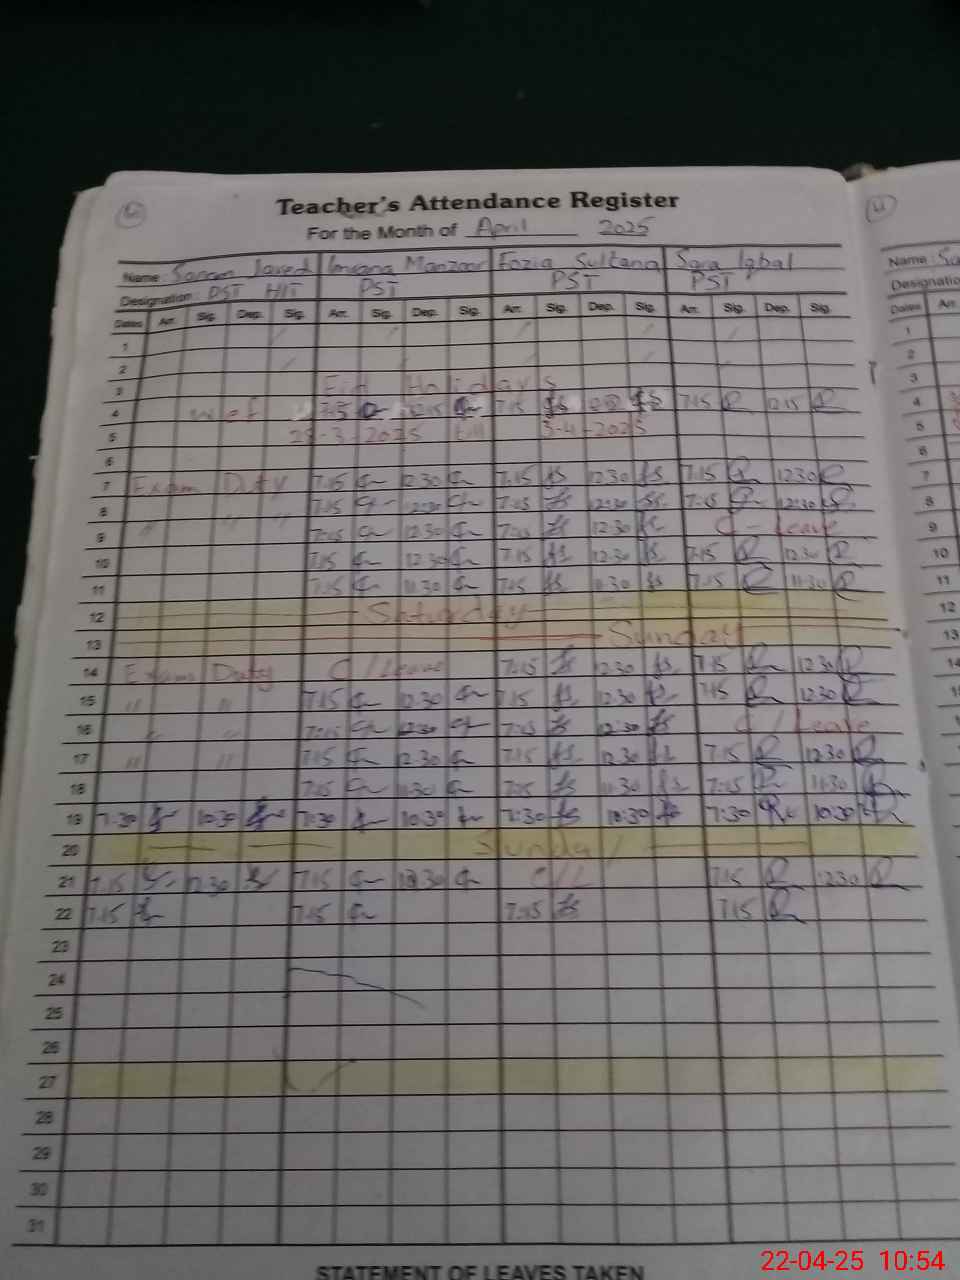 Teacher's Attendance Register
For the Month of April 2025
Name: Sanam Javed Imrana Manzoor Fozia Sultana Sara Iqbal
Designation: PST HIT PST PST PST
Dates Arr. Sig. Dep. Sig. Arr. Sig. Dep. Sig. Arr. Sig. Dep. Sig. Arr. Sig. Dep. Sig.
1
2
3 Eid Holidays
4 wef 7:15 12:15 7:15 7:15 12:15
5 28-3-2025 till 3-4-2025
6
7 Exam Duty 7:15 12:30 7:15 12:30 7:15 12:30
8 7:15 12:30 7:15 12:30 7:15 12:30
9 " " " 7:15 12:30 7:15 12:30 C-Leave
10 7:15 12:30 7:15 12:30 7:15 12:30
11 7:15 11:30 7:15 11:30 7:15 11:30
12 Saturday
13 Sunday
14 Exam Duty C/Leave 7:15 12:30 7:15 12:30
15 " " 7:15 12:30 7:15 12:30 7:15 12:30
16 " " 7:15 12:30 7:15 12:30 C/Leave
17 " " 7:15 12:30 7:15 12:30 7:15 12:30
18 7:15 11:30 7:15 11:30 7:15 11:30
19 7:30 10:30 7:30 10:30 7:30 10:30 7:30 10:30
20 Sunday
21 7:15 12:30 7:15 12:30 C/L 7:15 12:30
22 7:15 7:15 7:15 7:15
23
24
25
26
27
28
29
30
31
STATEMENT OF LEAVES TAKEN
Name:
Dates
1
2
3
4
5
6
7
8
9
10
11
12
13
14
22-04-25 10:54